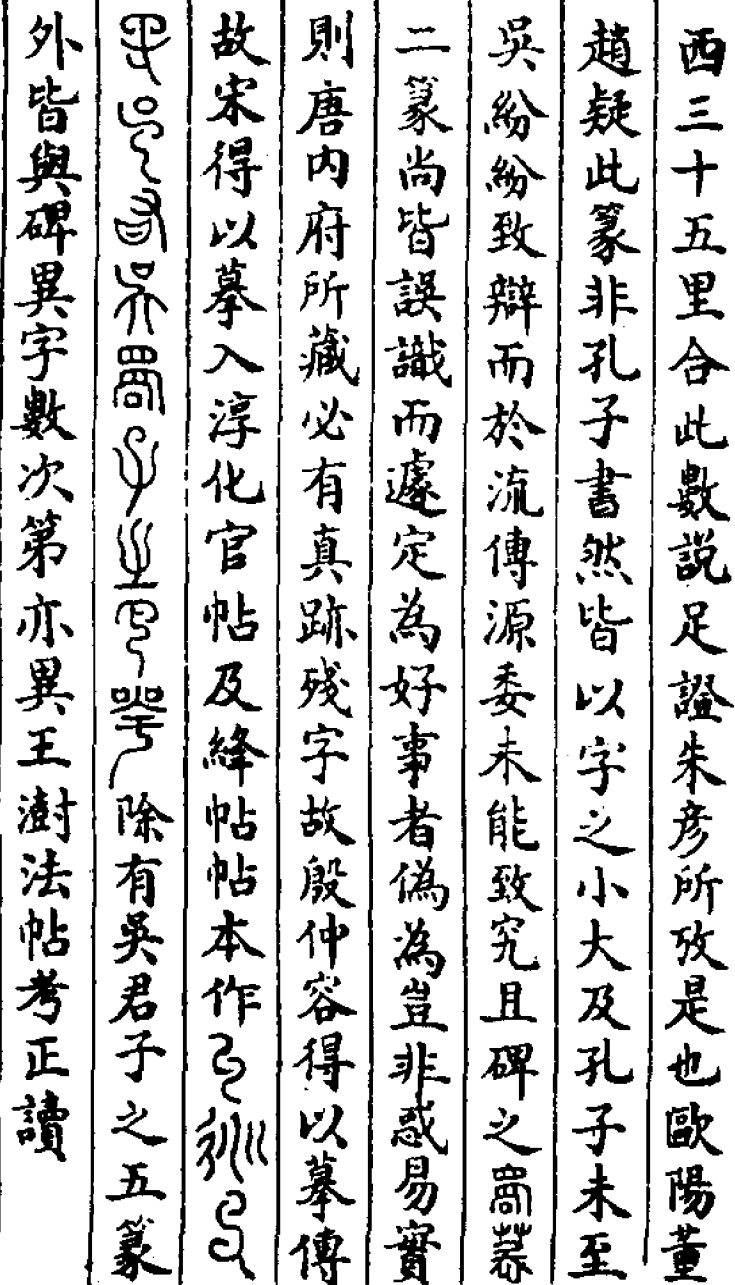 西三十五里合此數説足證朱彦所攷是也歐陽董
趙疑此篆非孔子書然皆以字之小大及孔子未至
吳紛紛致辯而於流傳源委未能致究且碑之
二篆尚皆誤識而遽定為好事者偽為豈非惑易實
則唐内府所藏必有真跡殘字故殷仲容得以摹傳
故宋得以摹入淳化官帖及絳帖帖本作
除有吳君子之五篆
外皆與碑異字數次第亦異王澍法帖考正讀